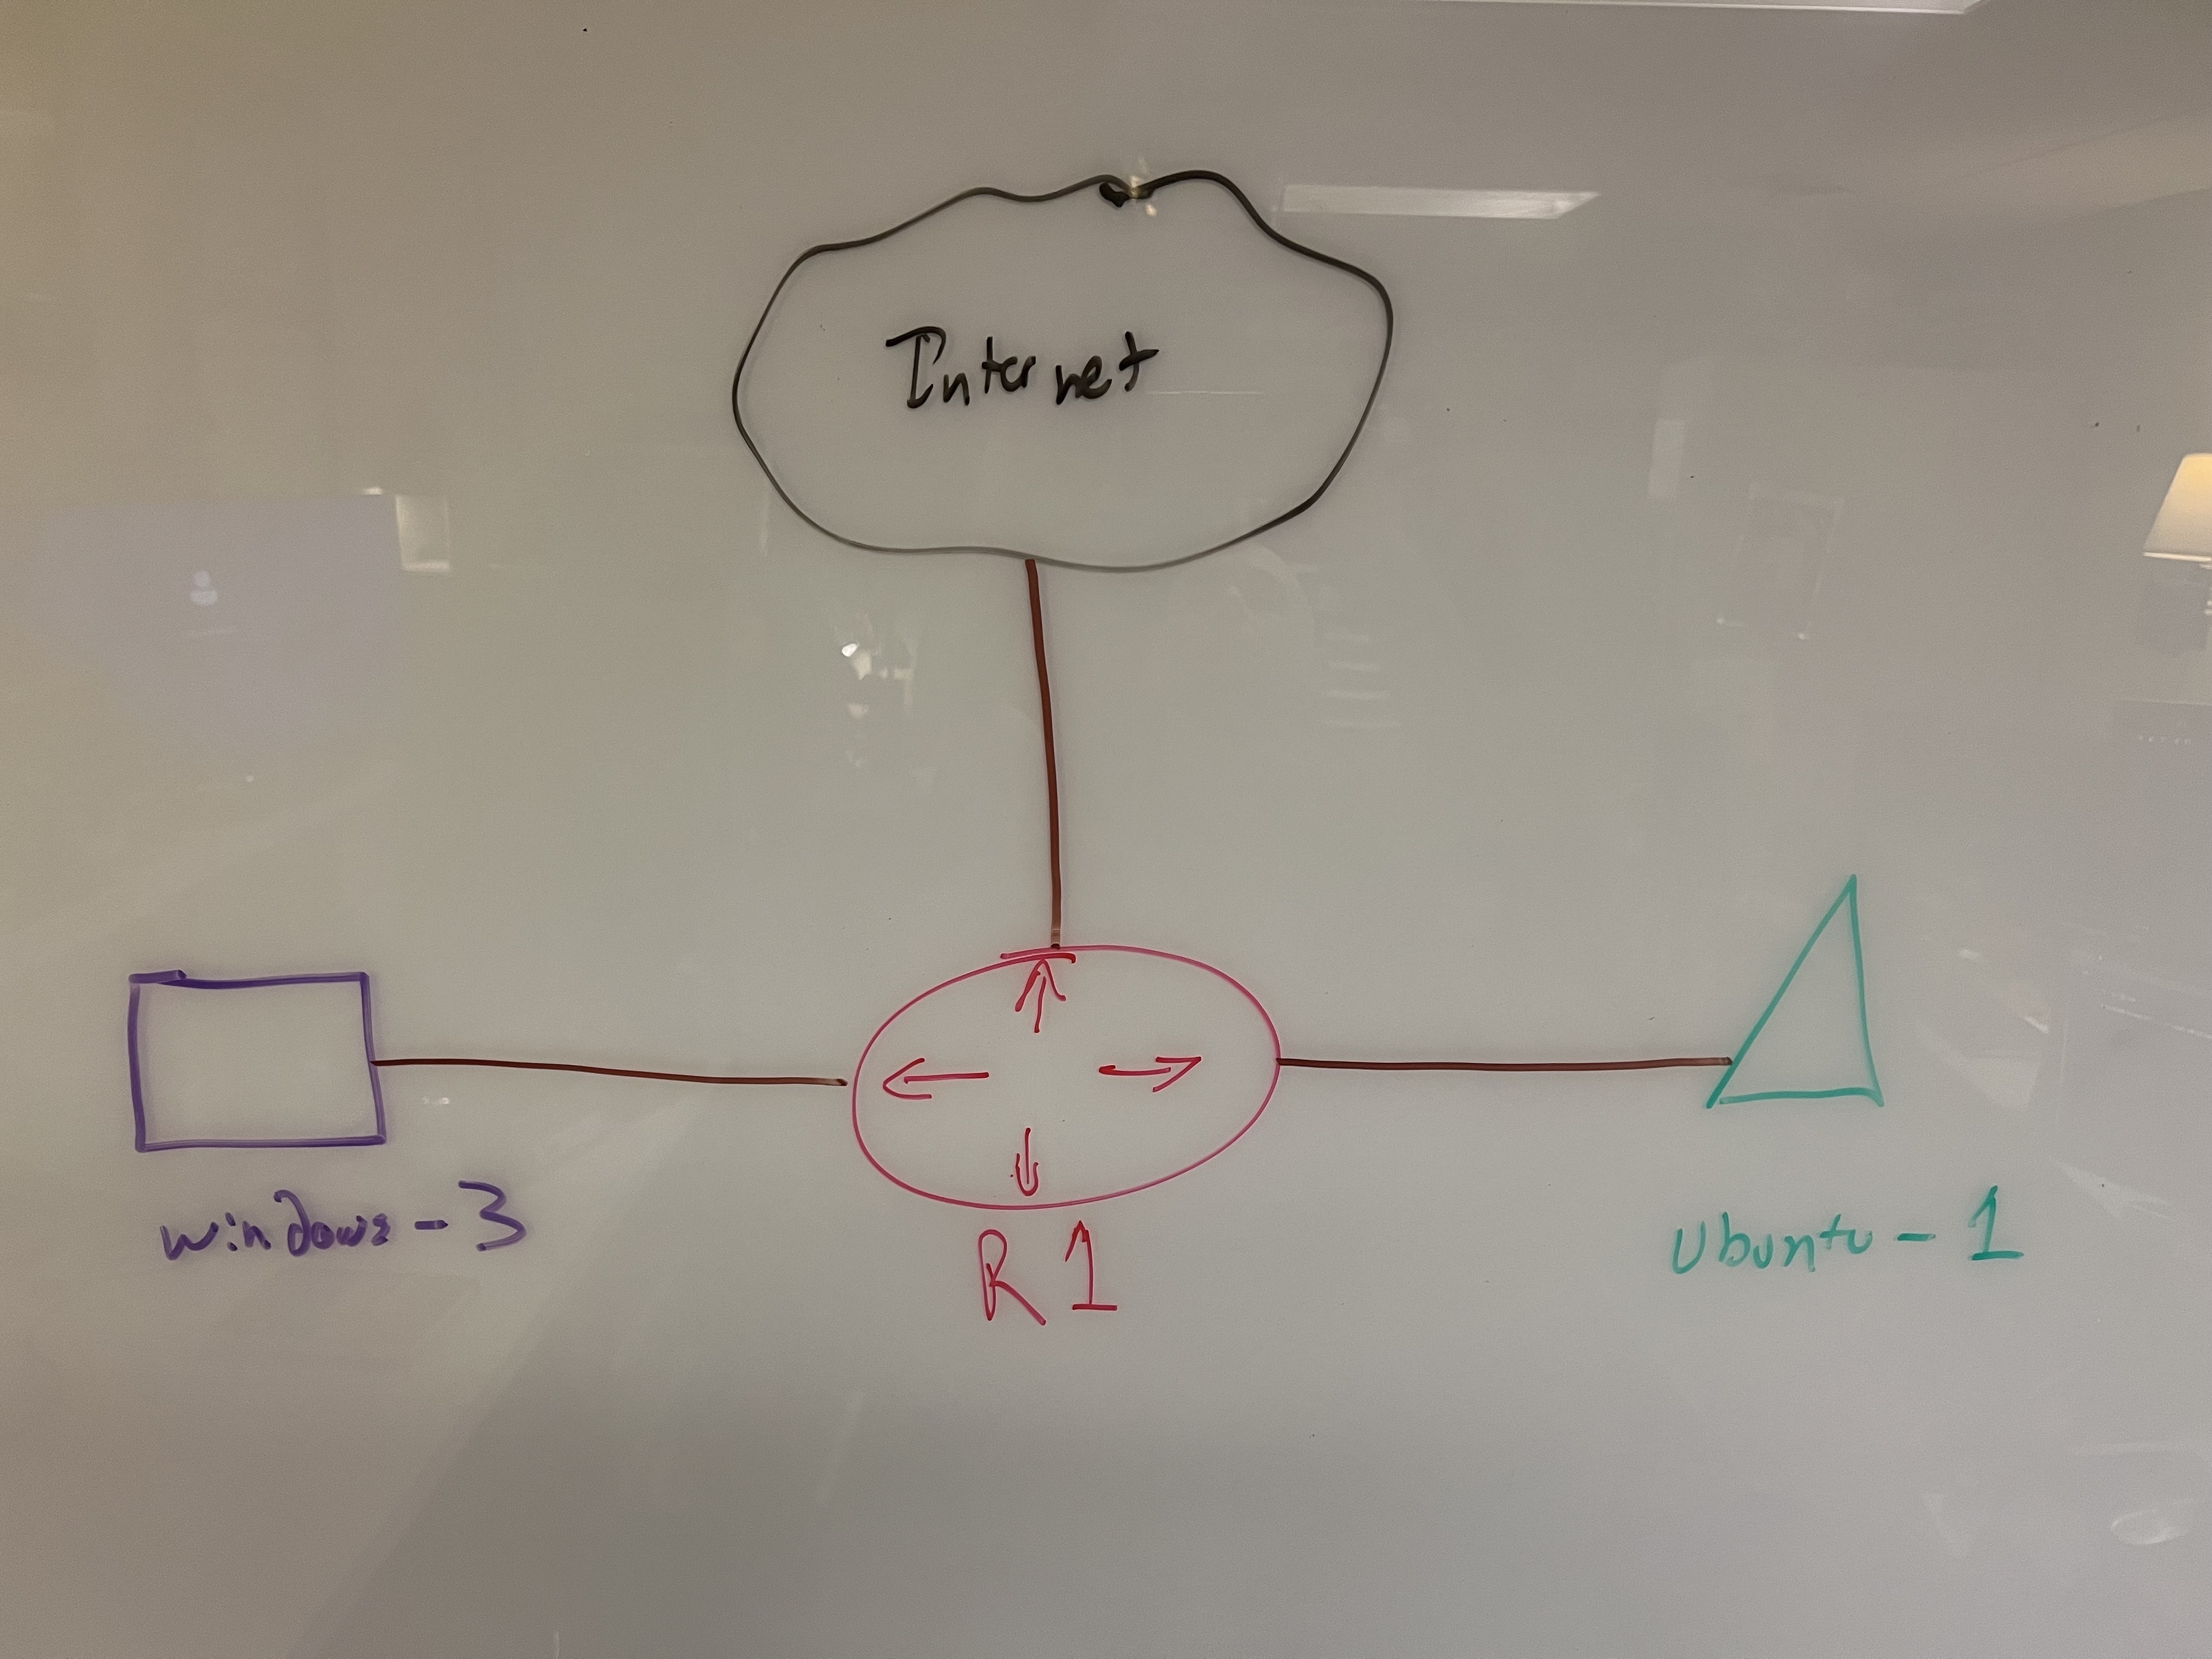 Internet
windows-3
R1
Ubuntu-1